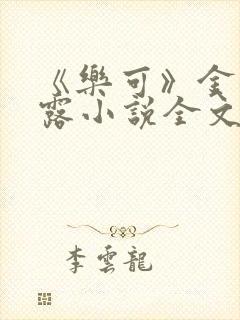 《樂可》金
露小說全文
李雲龍